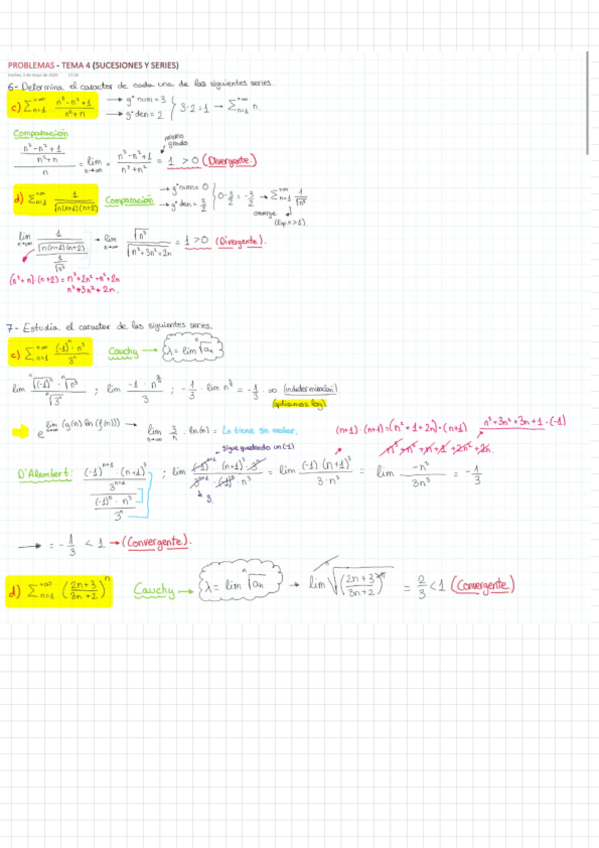 PROBLEMAS - TEMA 4 (SUCESIONES Y SERIES)
martes, 5 de mayo de 2020
6- Determina el caracter de cada una de las siguientes series.
c) Σ_{n=1}^{+∞} (n³-n²+1)/(n²+n) → gº num = 3 → gº den = 2 } 3-2=1 → Σ_{n=1}^{+∞} n.
Comparación
((n³-n²+1)/(n²+n))/n = lim_{n→∞} = (n³-n²+1)/(n³+n²) = 1 > 0 (Divergente.)
mismo grado
d) Σ_{n=1}^{+∞} 1/√(n(n+1)(n+2)) Comparación → gº num = 0 → gº den = 3/2 } 0-3/2 = -3/2 → Σ_{n=1}^{+∞} 1/√n³
converge (Exp n>1).
lim_{n→∞} (1/√(n(n+1)(n+2)))/(1/√n³) → lim_{n→∞} √n³/√(n³+3n²+2n) = 1 > 0 (Divergente).
(n²+n)·(n+2) = n³+2n²+n²+2n
n³+3n²+2n.
7- Estudia el caracter de las siguientes series.
c) Σ_{n=1}^{+∞} ((-1)^n · n³)/3^n Cauchy → λ = lim ⁿ√aₙ
lim (ⁿ√(-1)^n · ⁿ√n³)/ⁿ√3^n ; lim (-1 · n^{3/n})/3 ; -1/3 · lim n^{3/n} = -1/3 ∞ (indeterminación)
(aplicamos log)
e^{lim (g(n) ln(f(n)))} → lim_{n→∞} 3/n · ln(n) = Lo tiene sin acabar.
(n+1)·(n+1) = (n²+1+2n)·(n+1)
n³+3n²+3n+1·(-1)
n³+n²+n+1+2n²+2n
sigue quedando un (-1)
D'Alembert: ((-1)^{n+1} · (n+1)³/3^{n+1})/((-1)^n · n³/3^n) ; lim ((-1)^{n+1} (n+1)³ · 3^n)/(3^{n+1} · (-1)^n · n³) = lim ((-1)(n+1)³)/(3·n³) = lim -n³/3n³ = -1/3
3
→ = -1/3 < 1 → (Convergente).
d) Σ_{n=1}^{+∞} ((2n+3)/(3n+2))^n Cauchy → λ = lim ⁿ√aₙ → lim ⁿ√((2n+3)/(3n+2))^n = 2/3 < 1 (Convergente)